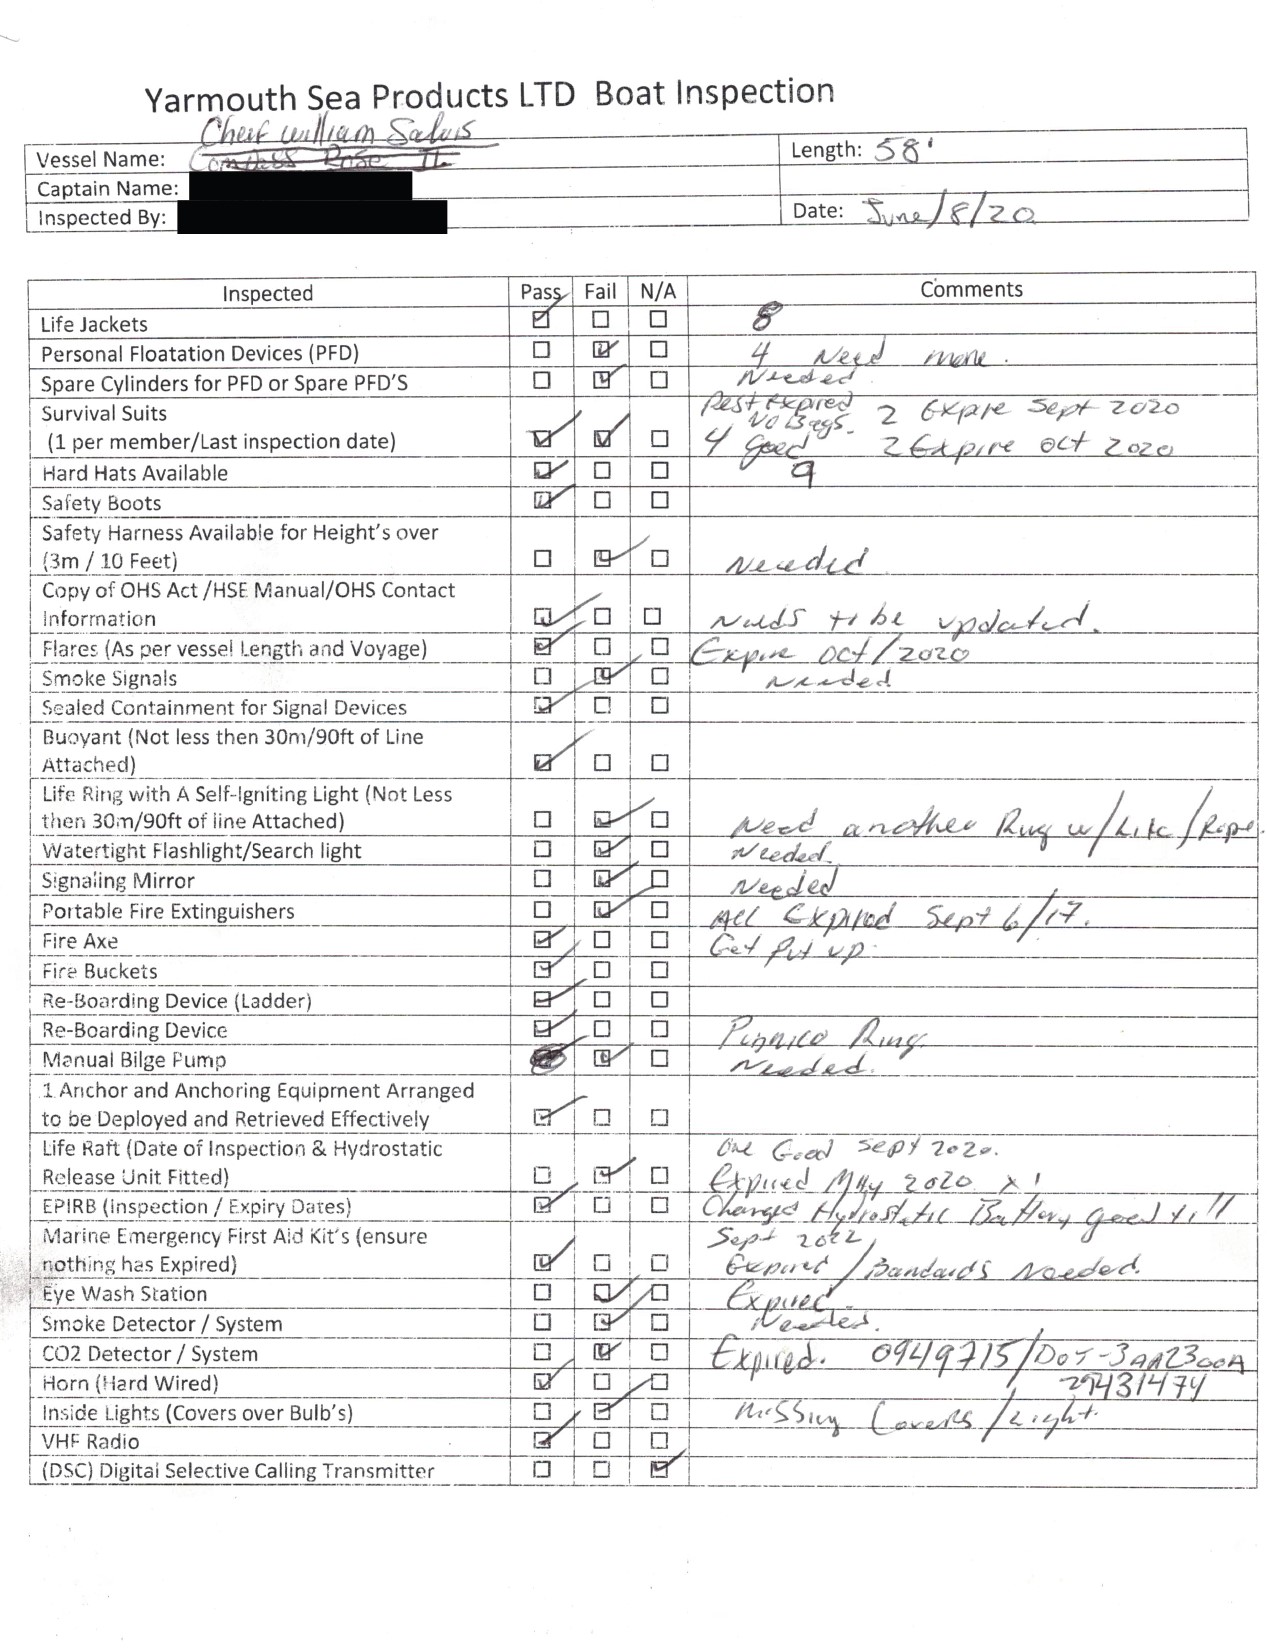 Yarmouth Sea Products LTD Boat Inspection
Cheif William Saluis
Vessel Name: Compass Rose II Length: 58'
Captain Name:
Inspected By: Date: June/8/20
Inspected Pass Fail N/A Comments
Life Jackets 8
Personal Floatation Devices (PFD) 4 Need more.
Spare Cylinders for PFD or Spare PFD'S Needed
Survival Suits Rest Expired 2 Expire Sept 2020
No Bags.
(1 per member/Last inspection date) 4 Good 2 Expire Oct 2020
Hard Hats Available 9
Safety Boots
Safety Harness Available for Height's over
(3m / 10 Feet) Needed
Copy of OHS Act /HSE Manual/OHS Contact
Information Needs to be updated.
Flares (As per vessel Length and Voyage) Expire Oct/2020
Smoke Signals Needed
Sealed Containment for Signal Devices
Buoyant (Not less then 30m/90ft of Line
Attached)
Life Ring with A Self-Igniting Light (Not Less
then 30m/90ft of line Attached) Need another Ring w/Lite/Rope.
Watertight Flashlight/Search light Needed.
Signaling Mirror Needed
Portable Fire Extinguishers All Expired Sept 6/17.
Fire Axe Get Put up.
Fire Buckets
Re-Boarding Device (Ladder)
Re-Boarding Device Ring.
Manual Bilge Pump Needed.
1 Anchor and Anchoring Equipment Arranged
to be Deployed and Retrieved Effectively
Life Raft (Date of Inspection & Hydrostatic One Good Sept 2020.
Release Unit Fitted) Expired May 2020 x1
EPIRB (Inspection / Expiry Dates) Changed Hydrostatic Battery good till
Marine Emergency First Aid Kit's (ensure Sept 2022
nothing has Expired) Expired / Bandaids Needed.
Eye Wash Station Expired.
Smoke Detector / System Needed.
CO2 Detector / System Expired. 0949715/DOT-3AA2300A
Horn (Hard Wired) 29431474
Inside Lights (Covers over Bulb's) Missing Covers/Light.
VHF Radio
(DSC) Digital Selective Calling Transmitter